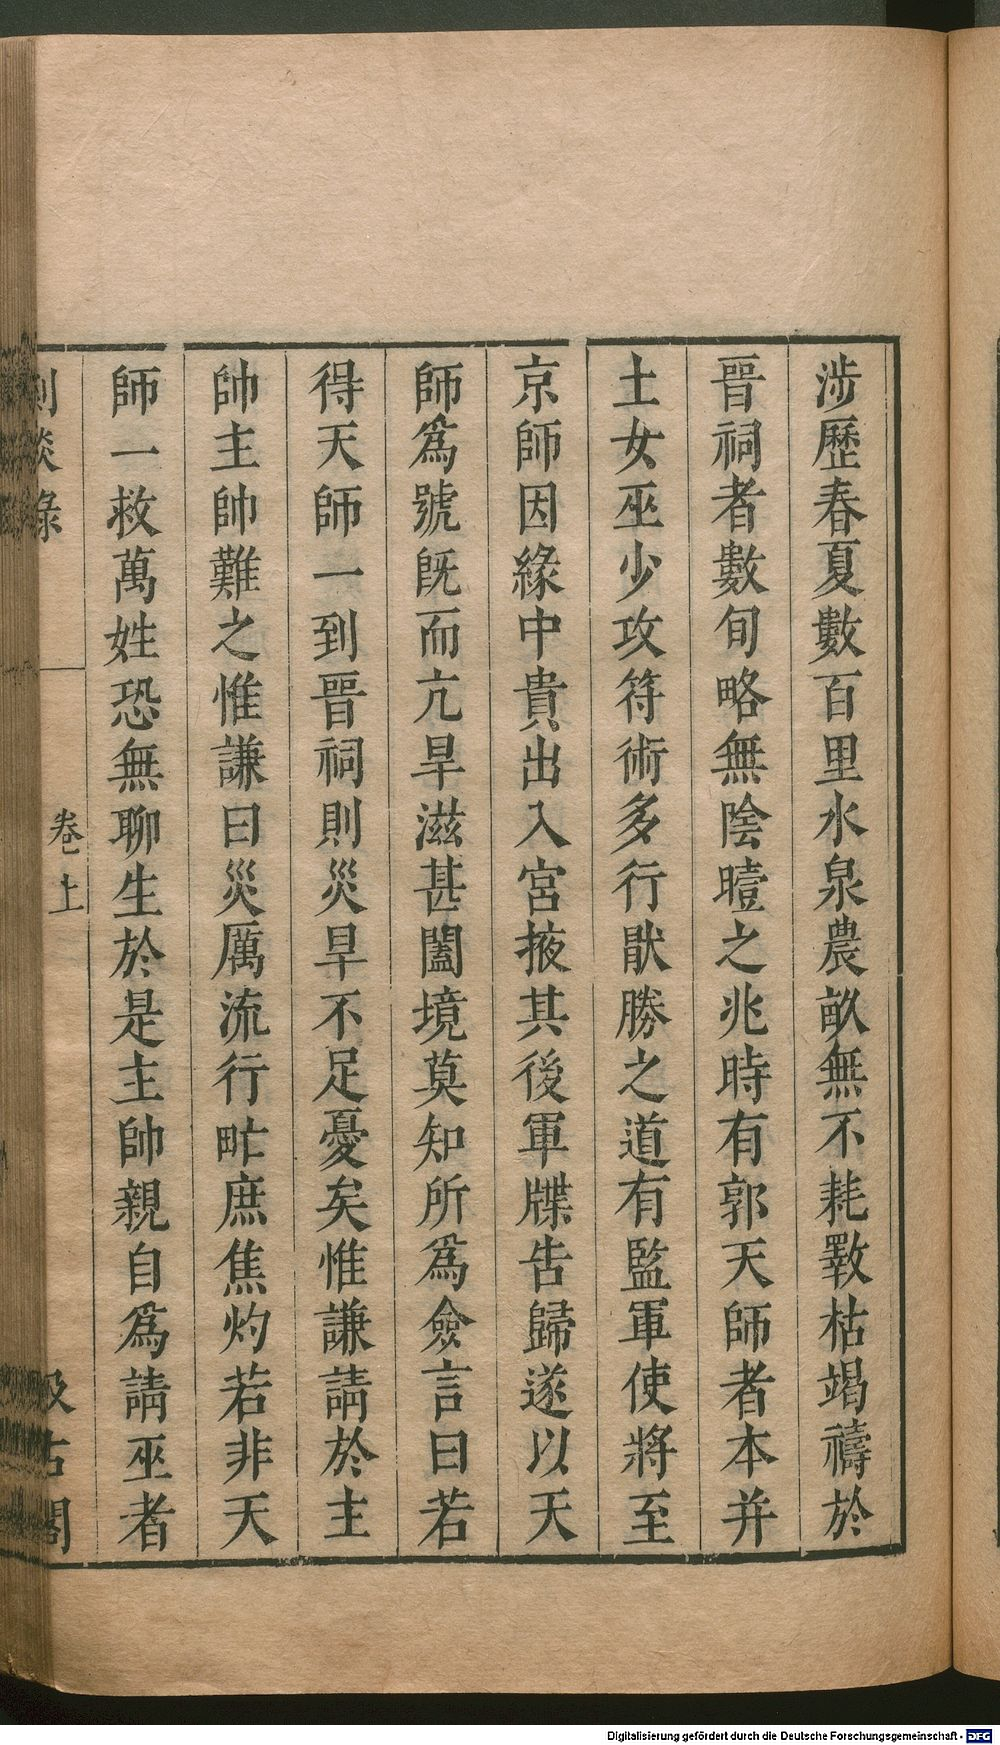 涉歷春夏數百里水泉農畝無不耗斁枯竭禱於
晉祠者數旬略無陰曀之兆時有郭天師者本并
土女巫少攻符術多行猒勝之道有監軍使將至
京師因緣中貴出入宮掖其後軍牒告歸遂以天
師爲號旣而亢旱滋甚闔境莫知所爲僉言曰若
得天師一到晉祠則災旱不足憂矣惟謙請於主
帥主帥難之惟謙曰災厲流行甿庶焦灼若非天
師一救萬姓恐無聊生於是主帥親自爲請巫者
劇談錄
卷上
汲古閣
Digitalisierung gefördert durch die Deutsche Forschungsgemeinschaft - DFG